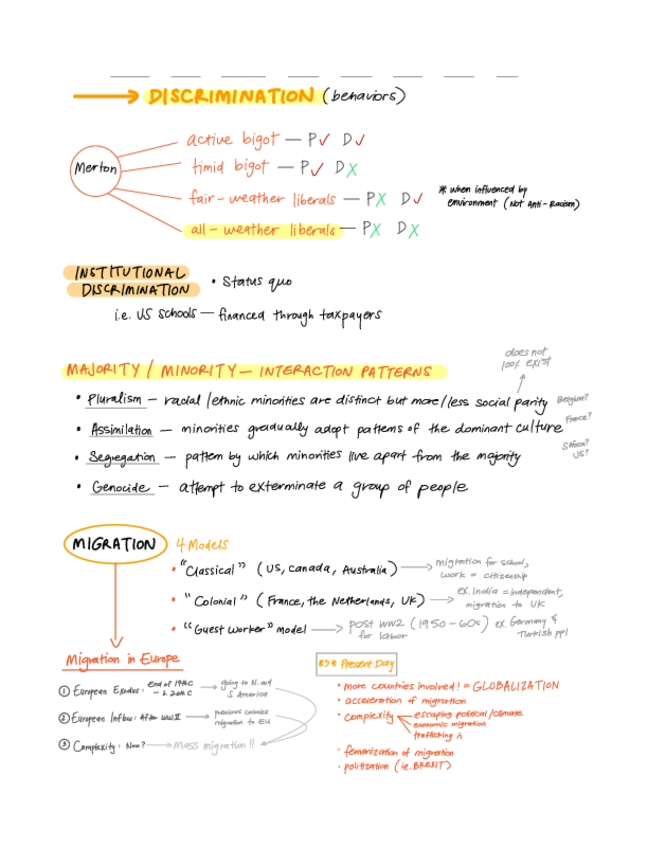 DISCRIMINATION (behaviors)
Merton
active bigot — P✓ D✓
timid bigot — P✓ DX
fair-weather liberals — PX D✓
* when influenced by
environment (Not Anti-Racism)
all-weather liberals — PX DX
INSTITUTIONAL
DISCRIMINATION
• Status quo
i.e. US schools — financed through taxpayers
does not
100% exist
MAJORITY / MINORITY — INTERACTION PATTERNS
• Pluralism — racial /ethnic minorities are distinct but more/less social parity
Belgium?
• Assimilation — minorities gradually adopt patterns of the dominant culture
France?
• Segregation — pattern by which minorities live apart from the majority
US?
• Genocide — attempt to exterminate a group of people
MIGRATION
4 Models
• "Classical" (US, Canada, Australia)
migration for school,
work = citizenship
• "Colonial" (France, the Netherlands, UK)
ex. India = independent,
migration to UK
• "Guest Worker" model
post WW2 (1950-60s) ex. Germany &
for labor Turkish ppl
Migration in Europe
Present Day
① European Exodus: End of 19th C
going to N. and
S. America
② European Inflow: After WWII
previous colonies
migration to EU
③ Complexity: Now?
Mass migration!!
• more countries involved! = GLOBALIZATION
• acceleration of migration
• complexity
escaping political/climate
economic migration
trafficking
• femenization of migration
• politization (i.e. BREXIT)